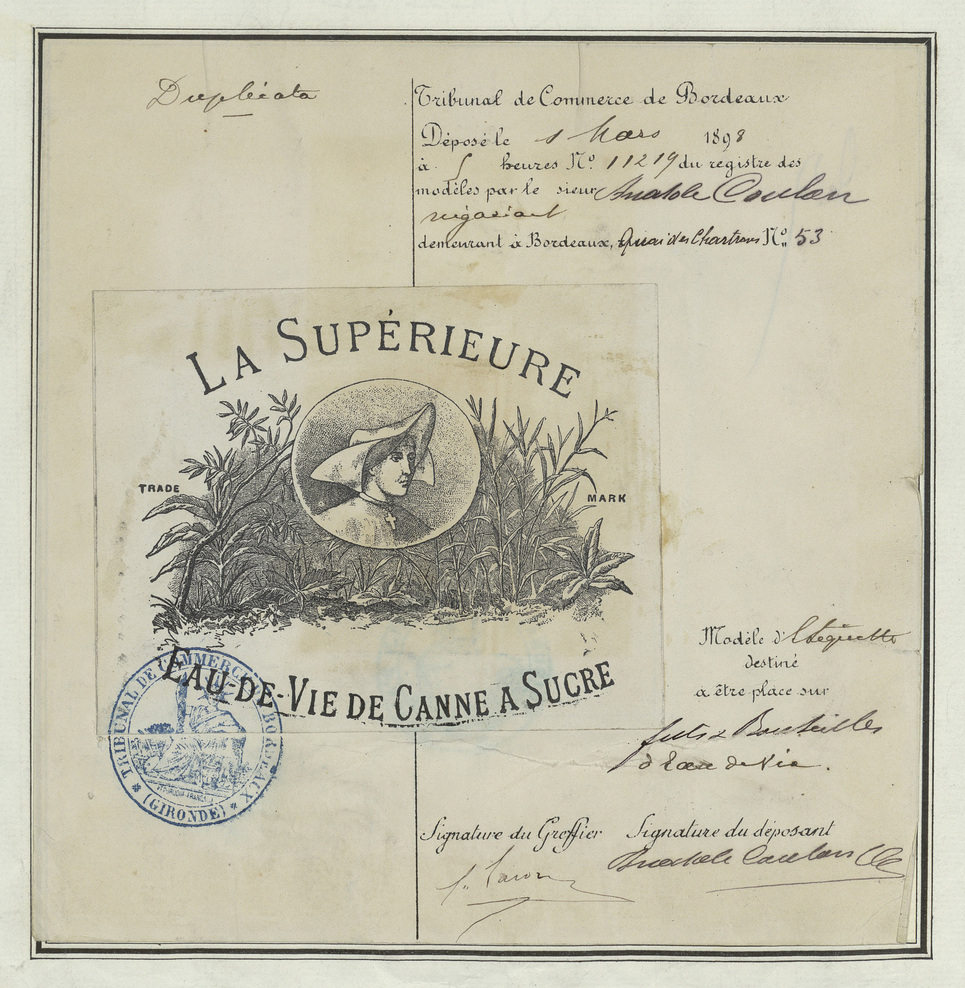 Duplicata
Tribunal de Commerce de Bordeaux
Déposé le 1 Mars 1898
à 5 heures No. 11219 du registre des
modèles par le sieur Anatole Coulon
négociant
demeurant à Bordeaux, Quai des Chartrons No. 53
LA SUPÉRIEURE
TRADE MARK
EAU-DE-VIE DE CANNE A SUCRE
TRIBUNAL DE COMMERCE BORDEAUX
(GIRONDE)
Modèle d'étiquette
destiné
à être place sur
futs & Bouteilles
d'Eau de Vie.
Signature du Greffier Signature du déposant
Anatole Coulon